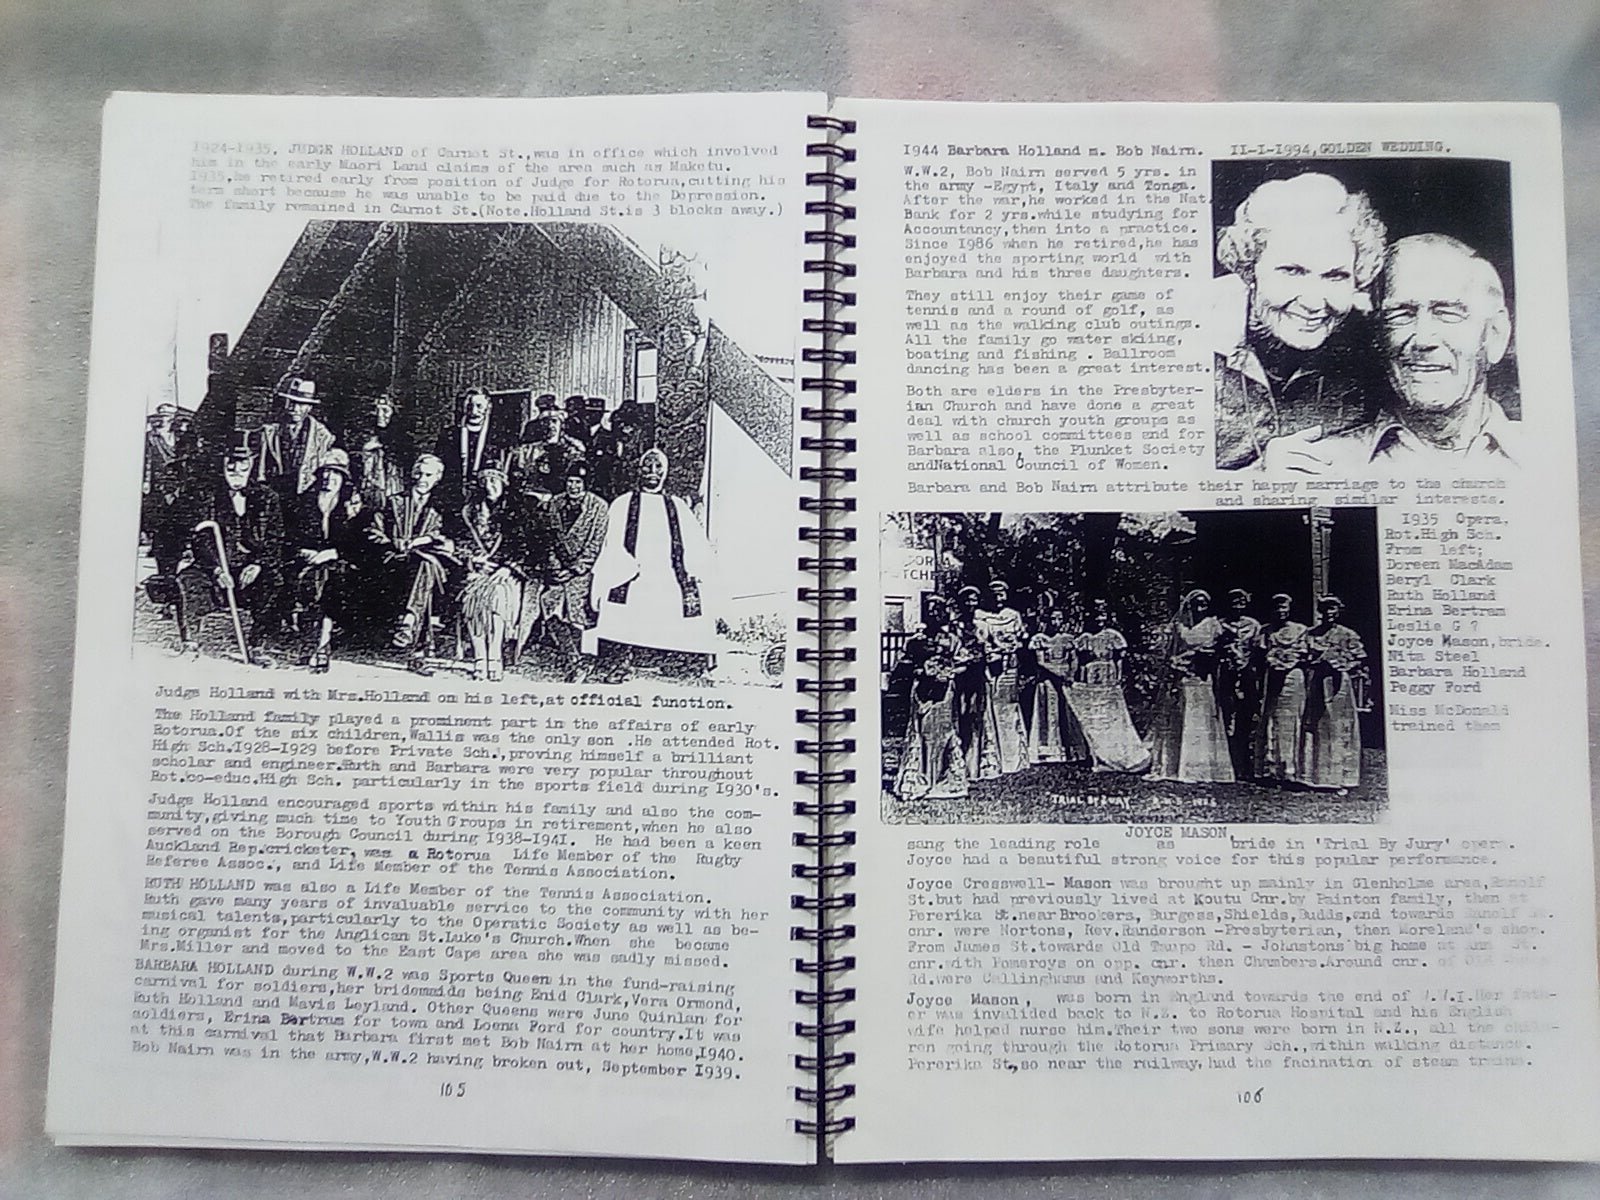 1924-1935. JUDGE HOLLAND of Carnot St.,was in office which involved
him in the early Maori Land claims of the area such as Maketu.
1935,he retired early from position of Judge for Rotorua,cutting his
term short because he was unable to be paid due to the Depression.
The family remained in Carnot St.(Note.Holland St.is 3 blocks away.)
Judge Holland with Mrs.Holland on his left,at official function.
The Holland family played a prominent part in the affairs of early
Rotorua.Of the six children,Wallis was the only son .He attended Rot.
High Sch.1928-1929 before Private Sch.,proving himself a brilliant
scholar and engineer.Ruth and Barbara were very popular throughout
Rot.co-educ.High Sch. particularly in the sports field during I930's.
Judge Holland encouraged sports within his family and also the com-
munity,giving much time to Youth Groups in retirement,when he also
served on the Borough Council during I938-I94I. He had been a keen
Auckland Rep.cricketer, was a Rotorua Life Member of the Rugby
Referee Assoc., and Life Member of the Tennis Association.
RUTH HOLLAND was also a Life Member of the Tennis Association.
Ruth gave many years of invaluable service to the community with her
musical talents,particularly to the Operatic Society as well as be-
ing organist for the Anglican St.Luke's Church.When she became
Mrs.Miller and moved to the East Cape area she was sadly missed.
BARBARA HOLLAND during W.W.2 was Sports Queen in the fund-raising
carnival for soldiers,her bridesmaids being Enid Clark,Vera Ormond,
Ruth Holland and Mavis Leyland. Other Queens were June Quinlan for
soldiers, Erina Bertram for town and Loena Ford for country.It was
at this carnival that Barbara first met Bob Nairn at her home,I940.
Bob Nairn was in the army,W.W.2 having broken out, September I939.
105
I944 Barbara Holland m. Bob Nairn. II-I-I994,GOLDEN WEDDING.
W.W.2, Bob Nairn served 5 yrs. in
the army -Egypt, Italy and Tonga.
After the war,he worked in the Nat.
Bank for 2 yrs.while studying for
Accountancy,then into a practice.
Since I986 when he retired,he has
enjoyed the sporting world with
Barbara and his three daughters.
They still enjoy their game of
tennis and a round of golf, as
well as the walking club outings.
All the family go water skiing,
boating and fishing . Ballroom
dancing has been a great interest.
Both are elders in the Presbyter-
ian Church and have done a great
deal with church youth groups as
well as school committees and for
Barbara also, the Plunket Society
andNational Council of Women.
Barbara and Bob Nairn attribute their happy marriage to the church
and sharing similar interests.
I935 Opera,
Rot.High Sch.
From left;
Doreen MacAdam
Beryl Clark
Ruth Holland
Erina Bertram
Leslie G ?
Joyce Mason,bride.
Nita Steel
Barbara Holland
Peggy Ford
Miss McDonald
trained them
TRIAL BY JURY
JOYCE MASON,
sang the leading role as bride in 'Trial By Jury' opera.
Joyce had a beautiful strong voice for this popular performance.
Joyce Cresswell- Mason was brought up mainly in Glenholme area,Ranolf
St.but had previously lived at Koutu Cnr.by Painton family, then at
Pererika St.near Brookers, Burgess,Shields,Budds,and towards Ranolf St.
cnr. were Nortons, Rev.Randerson -Presbyterian, then Moreland's shop.
From James St.towards Old Taupo Rd. - Johnstons'big home at St.
cnr.with Pomeroys on opp. cnr. then Chambers.Around cnr. of Old
Rd.were Callinghams and Keyworths.
Joyce Mason, was born in England towards the end of W.W.I.Her fath-
er was invalided back to N.Z. to Rotorua Hospital and his English
wife helped nurse him.Their two sons were born in N.Z., all the child-
ren going through the Rotorua Primary Sch.,within walking distance.
Pererika St,so near the railway,had the facination of steam trains.
106